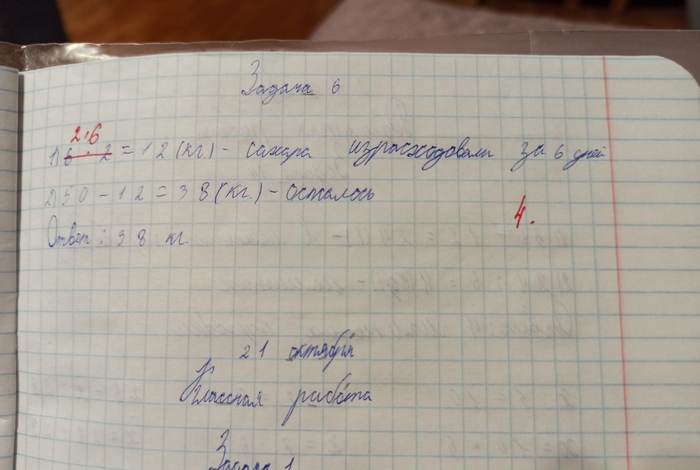 Задача 6
2·6
1) 6 · 2 = 12 (кг.) - сахара израсходовали за 6 дней
2) 50 - 12 = 38 (кг.) - осталось
4.
Ответ: 38 кг.
21 октября
Классная работа
Задача 1